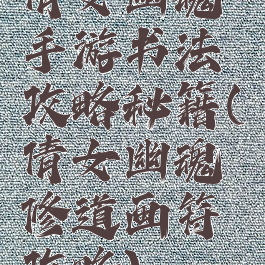 倩女幽魂
手游书法
攻略秘籍(
倩女幽魂
修道画符
攻略)